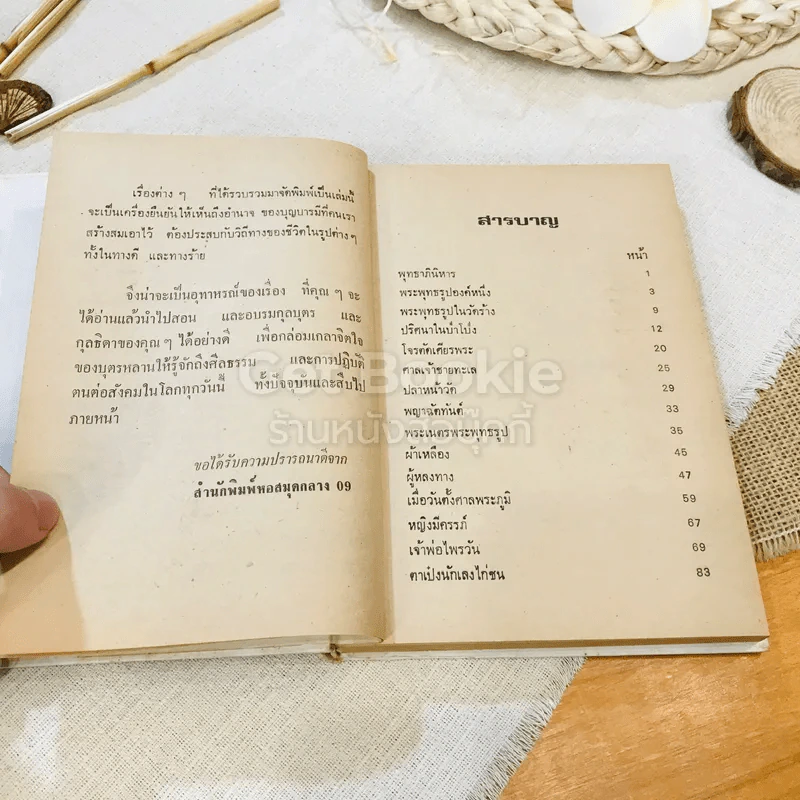 เรื่องต่าง ๆ ที่ได้รวบรวมมาจัดพิมพ์เป็นเล่มนี้
จะเป็นเครื่องยืนยันให้เห็นถึงอำนาจ ของบุญบารมีที่คนเรา
สร้างสมเอาไว้ ต้องประสบกับวิถีทางของชีวิตในรูปต่างๆ
ทั้งในทางดี และทางร้าย
จึงน่าจะเป็นอุทาหรณ์ของเรื่อง ที่คุณ ๆ จะ
ได้อ่านแล้วนำไปสอน และอบรมกุลบุตร และ
กุลธิดาของคุณ ๆ ได้อย่างดี เพื่อกล่อมเกลาจิตใจ
ของบุตรหลานให้รู้จักถึงศีลธรรม และการปฏิบัติ
ตนต่อสังคมในโลกทุกวันนี้ ทั้งปัจจุบันและสืบไป
ภายหน้า
ขอได้รับความปรารถนาดีจาก
สำนักพิมพ์หอสมุดกลาง 09
สารบาญ
หน้า
พุทธาภินิหาร 1
พระพุทธรูปองค์หนึ่ง 3
พระพุทธรูปในวัดร้าง 9
ปริศนาในบ้าโบ่ง 12
โจรตัดเศียรพระ 20
ศาลเจ้าชายทะเล 25
ปลาหน้าวัด 29
พญาฉัตทันต์ 33
พระเนตรพระพุทธรูป 35
ผ้าเหลือง 45
ผู้หลงทาง 47
เมื่อวันตั้งศาลพระภูมิ 59
หญิงมีครรภ์ 67
เจ้าพ่อไพรวัน 69
ตาเป๋งนักเลงไก่ชน 83
Get Bookie
ร้านหนังสือบุ๊กกี้